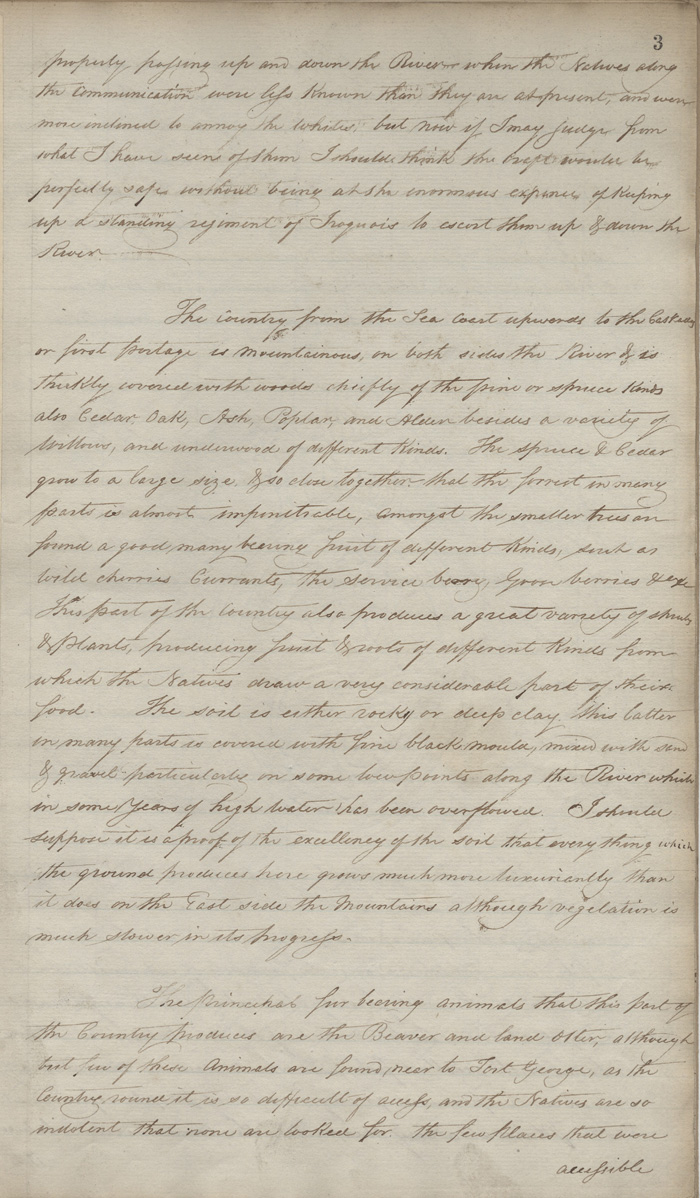 3
property passing up and down the River when the Natives along
the Communication were less Known than they are at present, and were
more inclined to annoy the Whites, but now if I may judge from
what I have seen of them I should think the Craft would be
perfectly safe without being at the enormous expence of Keeping
up a standing regiment of Iroquois to escort them up & down the
River.
The Country from the Sea Coast upwards to the Cascades
or first portage is mountainous, on both sides the River & is
thickly covered with woods chiefly of the pine or spruce Kinds
also Cedar, Oak, Ash, Poplar, and Alder besides a variety of
Willows, and underwood of different Kinds. The spruce & Cedar
grow to a large size & so close together that the forrest in many
parts is almost impenitrable, amongst the smaller trees are
found a good many bearing fruit of different Kinds, such as
wild cherries Currants, the service berry, Goos berries &
This part of the Country also produces a great variety of shrubs
& plants, producing fruit & roots of different Kinds from
which the Natives draw a very considerable part of their
food. The soil is either rocky or deep clay, this latter
in many parts is covered with fine black mould, mixed with sand
& gravel particularly on some low points along the River which
in some Years of high water has been overflowed. I should
suppose it is a proof of the excellency of the soil that every thing which
the ground produces here grows much more luxuriantly than
it does on the East side the Mountains although vegetation is
much slower in its progress.
The principal fur bearing animals that this part of
the Country produces are the Beaver and land Otter, although
but few of these Animals are found near to Fort George, as the
Country round it is so difficult of access, and the Natives are so
indolent that none are looked for. the few places that were
accessible